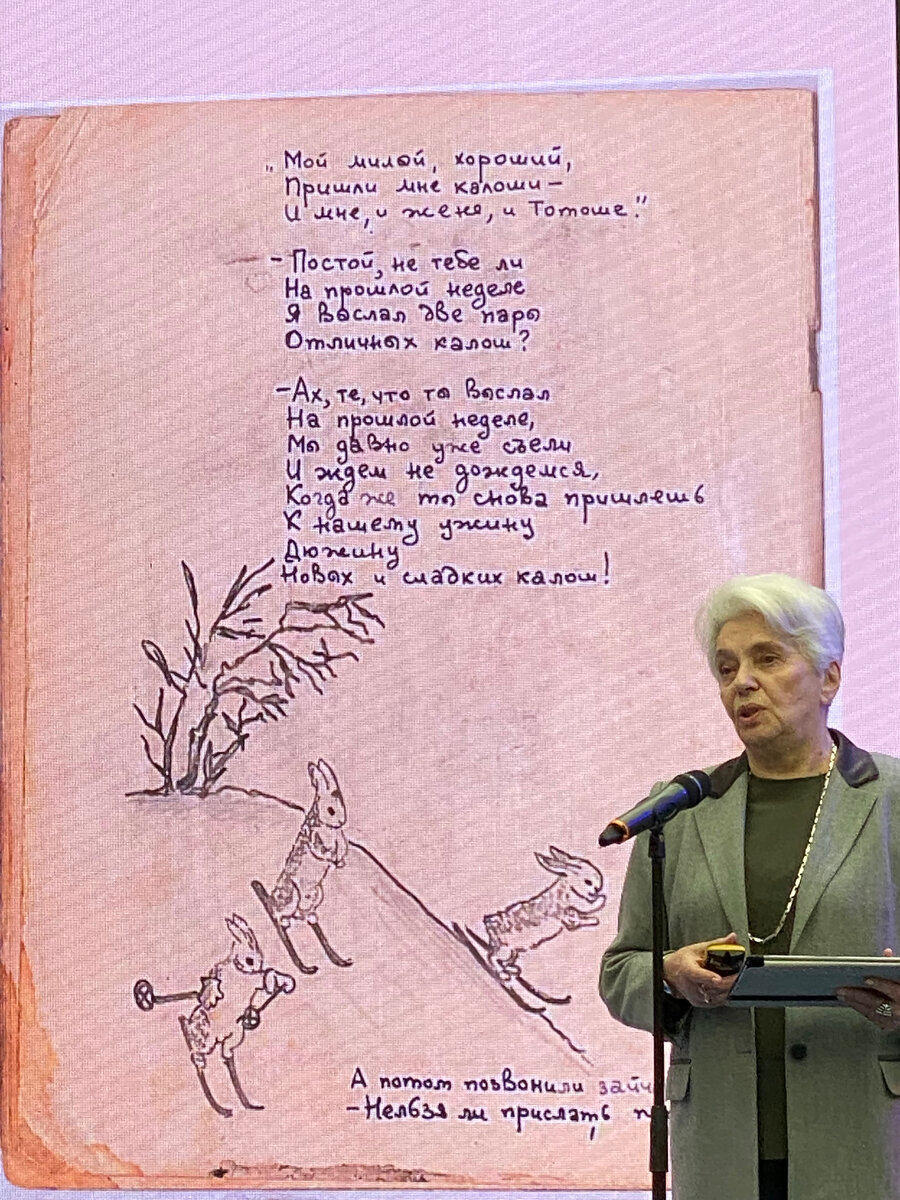 „Мой милой, хороший,
Пришли мне калоши –
И мне, и жене, и Тотоше."
– Постой, не тебе ли
На прошлой неделе
Я выслал две пары
Отличных калош?
– Ах, те, что ты выслал
На прошлой неделе,
Мы давно уже съели
И ждем не дождемся,
Когда же ты снова пришлешь
К нашему ужину
Дюжину
Новых и сладких калош!
А потом позвонили
– Нельзя ли прислать